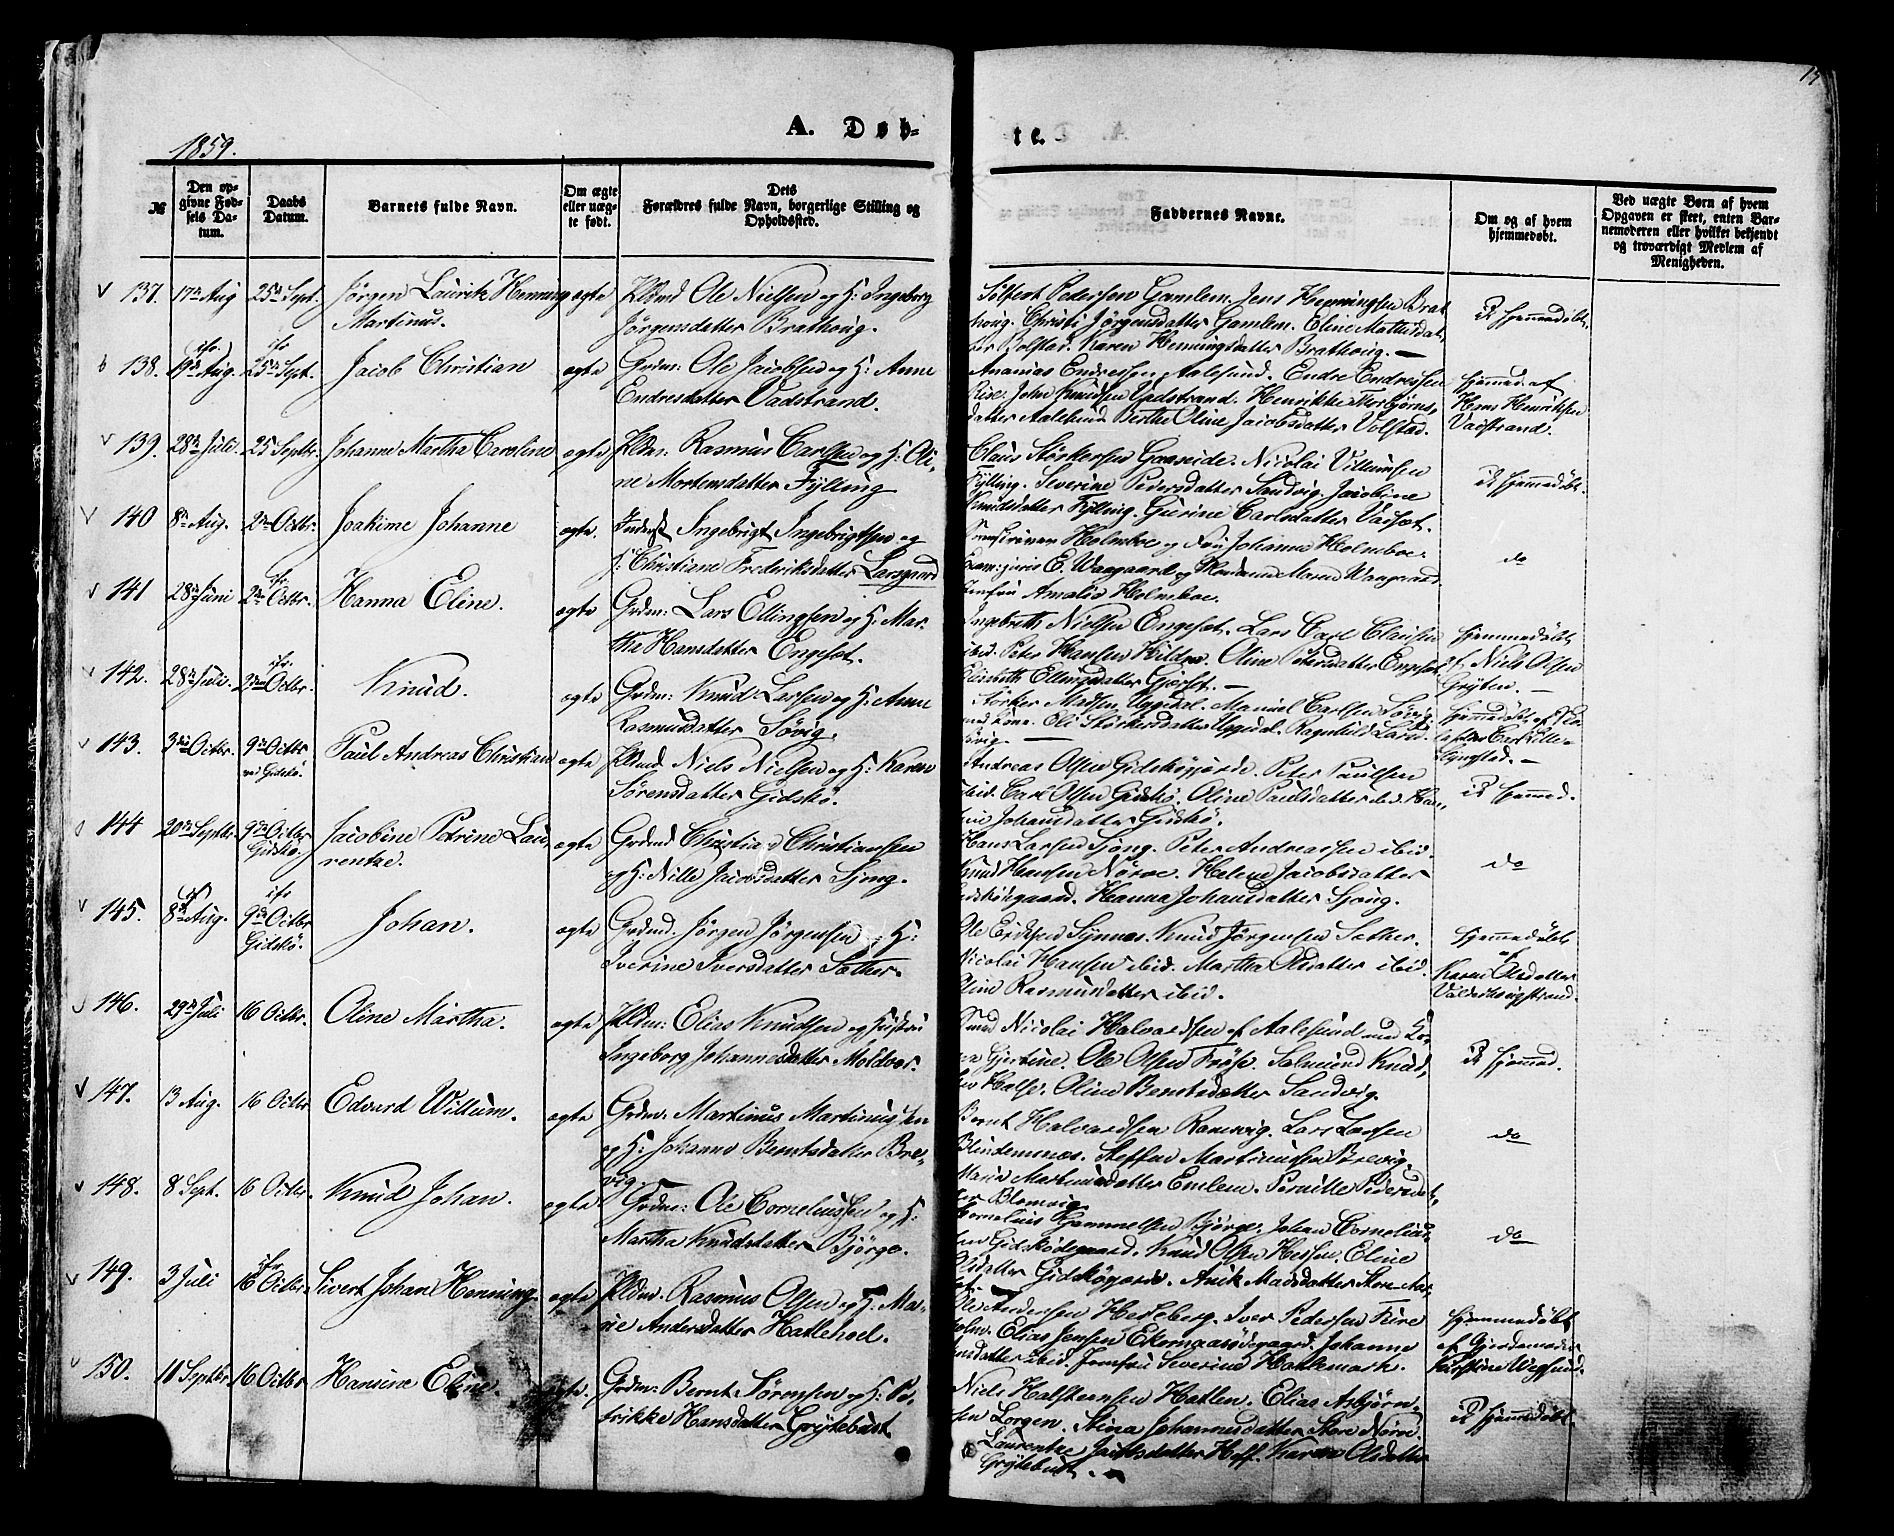 1859.
A. Døb-
te.
17
№
Den op-
givne Fød-
sels Da-
tum.
Daabs
Datum.
Barnets fulde Navn.
Om ægte
eller uæg-
te født.
Dets
Forældres fulde Navn, borgerlige Stilling og
Opholdssted.
Faddernes Navne.
Om og af hvem
hjemmedøbt.
Ved uægte Børn af hvem
Opgaven er skeet, enten Bar-
nemoderen eller hvilket bekjendt
og troværdigt Medlem af
Menigheden.
137. 17de Aug 25de Sept. Jörgen Lauritz Henning ægte Ole Nielsen og H: Ingeborg
Martinus. Jörgensdatter Brathoug.
Pedersen Gamlem. Jens Henningsen Brat
houg. Christi Jörgensdatter Gamlem. Eline Mathisdat,
ter Bolstad. Karen Henningsdatter Brathoug. —
ei hjemmedøbt.
138. 19de Aug. 25de Sept. Jacob Christian ægte Grdm: Ole Jacobsen og H: Anne
Endresdatter Vadstrand.
Ananias Endressen Aalesund. Endre Endressen
Rise. John Knudsen Vadstrand. Henrikke Thorbjörns,
datter Aalesund. Berthe Oline Jacobsdatter Volstad.
hjemmed. af
Hans Henriksen
Vadstrand.
139. 28de Juli 25 Septbr. Johanne Martha Caroline ægte Rasmus Carlsen og H: Oli-
ne Mortensdatter Fylling
Claus Störkersen Gaaseide. Nicolai Villumsen
Fylling. Severine Pedersdatter Sandvig. Jacobine
Knudsdatter Fylling. Gurine Carlsdatter Vasset.
ei hjemmedøbt.
140 8de Aug. 2den Octbr. Joakime Johanne ægte. Inderst Ingebrigt Ingebrigtsen og
H: Christiane Frederiksdatter Larsgaard
Holmboe og Fru Johanna Holmboe.
Exam: juris E. Waagaard og Madame Waagaard.
Jomfru Amalia Holmboe.
do
141 28de Juni 2den Octbr. Hanna Eline. ægte Grdm: Lars Ellingsen og H: Mar-
tha Hansdatter Engeset.
Ingebreth Nielsen Engeset. Lars Carl Clausen
ibid. Peter Hansen Hildre. Oline Petersdatter Engeset.
Elisabeth Ellingsdatter Gjerset. —
hjemmedøbt
af Niels Olsen
Gryten. —
142. 28de Juli. 2den Octbr. Knud. ægte Grdm: Knud Larsen og H: Anne
Rasmusdatter Sövig.
Störker Madsen Uggedal. Manuel Carlsen Sövig
med Kone. Eli Störkersdatter Uggedal. Ragnhild Larsd.
Sövig —
143. 3die Octbr. 9de Octbr Paul Andreas Christian ægte Niels Nielsen og H: Karen
ved Gidskö. Sörensdatter Gidskö.
Andreas Olsen Gidskögjerde. Peter Paulsen
ibid. Carl Olsen Gidskö. Oline Paulsdatter ibid. Han,
sine Johansdatter Gidskö.
ei hjemmed.
144 20de Septbr 9de Octbr Jacobine Petrine Lau, ægte Grdmd Christian Christiansen
Gidskö. rentze. og H: Nille Jacobsdatter Sjong.
Hans Larsen Sjong. Peter Andreassen ibid.
Knud Hansen Nörve. Helene Jacobsdatter
Gidsköegaard. Hanna Johansdatter Sjong.
do
145. 8de Aug. 9de Octbr Johan. ægte Grdmd. Jörgen Jörgensen og H:
Gidskö. Iverine Iversdatter Sæther.
Ole Eriksen Synnæs. Knud Jörgensen Sæther.
Nicolai Hansen ibid. Martha Olsdatter ibid.
Oline Rasmusdatter ibid.
hjemmedøbt
af
Karen Olsdatter
Valderhougstrand.
146. 29de Juli 16 Octbr. Oline Martha. ægte Elias Knudsen og Hustru
Ingeborg Johannesdatter Moldvær.
Nicolai Halvardsen af Aalesund med Ko,
ne Gjertine. Ole Olsen Fröse. Salmund Knud,
sen Halse. Oline Berntsdatter Sandvig.
ei hjemmed.
147. 13 Aug. 16 Octbr Edvard Willum. ægte Grdm. Martinus Martinussen
og H: Johanne Berntsdatter Bre-
vig.
Bernt Halvardsen Ramsvig. Lars Larsen
Blindemnæs. Steffen Martinussen Brevig.
Marie Martinusdatter Emlem. Pernille Pedersdat,
ter Blomvig.
do
148. 8 Sept. 16 Octbr. Knud Johan. ægte Grdm: Ole Corneliussen og H:
Martha Knudsdatter Björge.
Cornelius Gammelsen Björge. Johan Cornelius
sen Gidsködegaard. Knud Olsen Hessen. Eline
Olsdatter Gidskögjerde. Anik Madsdatter Store Aar,
set.
do
149. 3 Juli 16 Octbr. Sivert Johan Henning. ægte Rasmus Olsen og H. Ma-
rie Andersdatter Hatlehoel.
Ole Andersen Hesseberg. Iver Pedersen Rise
holm. Elias Jensen Eknæsödegaard. Johanne
Jensdatter ibid. Jomfru Severine Hatlemark.
hjemmedøbt
af Gjordemoder
150. 10 Septbr 16 Octbr Hansine Eline. ægte. Grdm: Bernt Sörensen og H: Pe,
trikke Hansdatter Grytebust
Niels Halsteensen Hatlen. Elias Asbjörn,
sen Lorgen. Stina Johannesdatter Store Nörve.
Laurentze Jacobsdatter Hoff. Karen Olsdatter
Grytebust. —
ei hjemmedøbt.